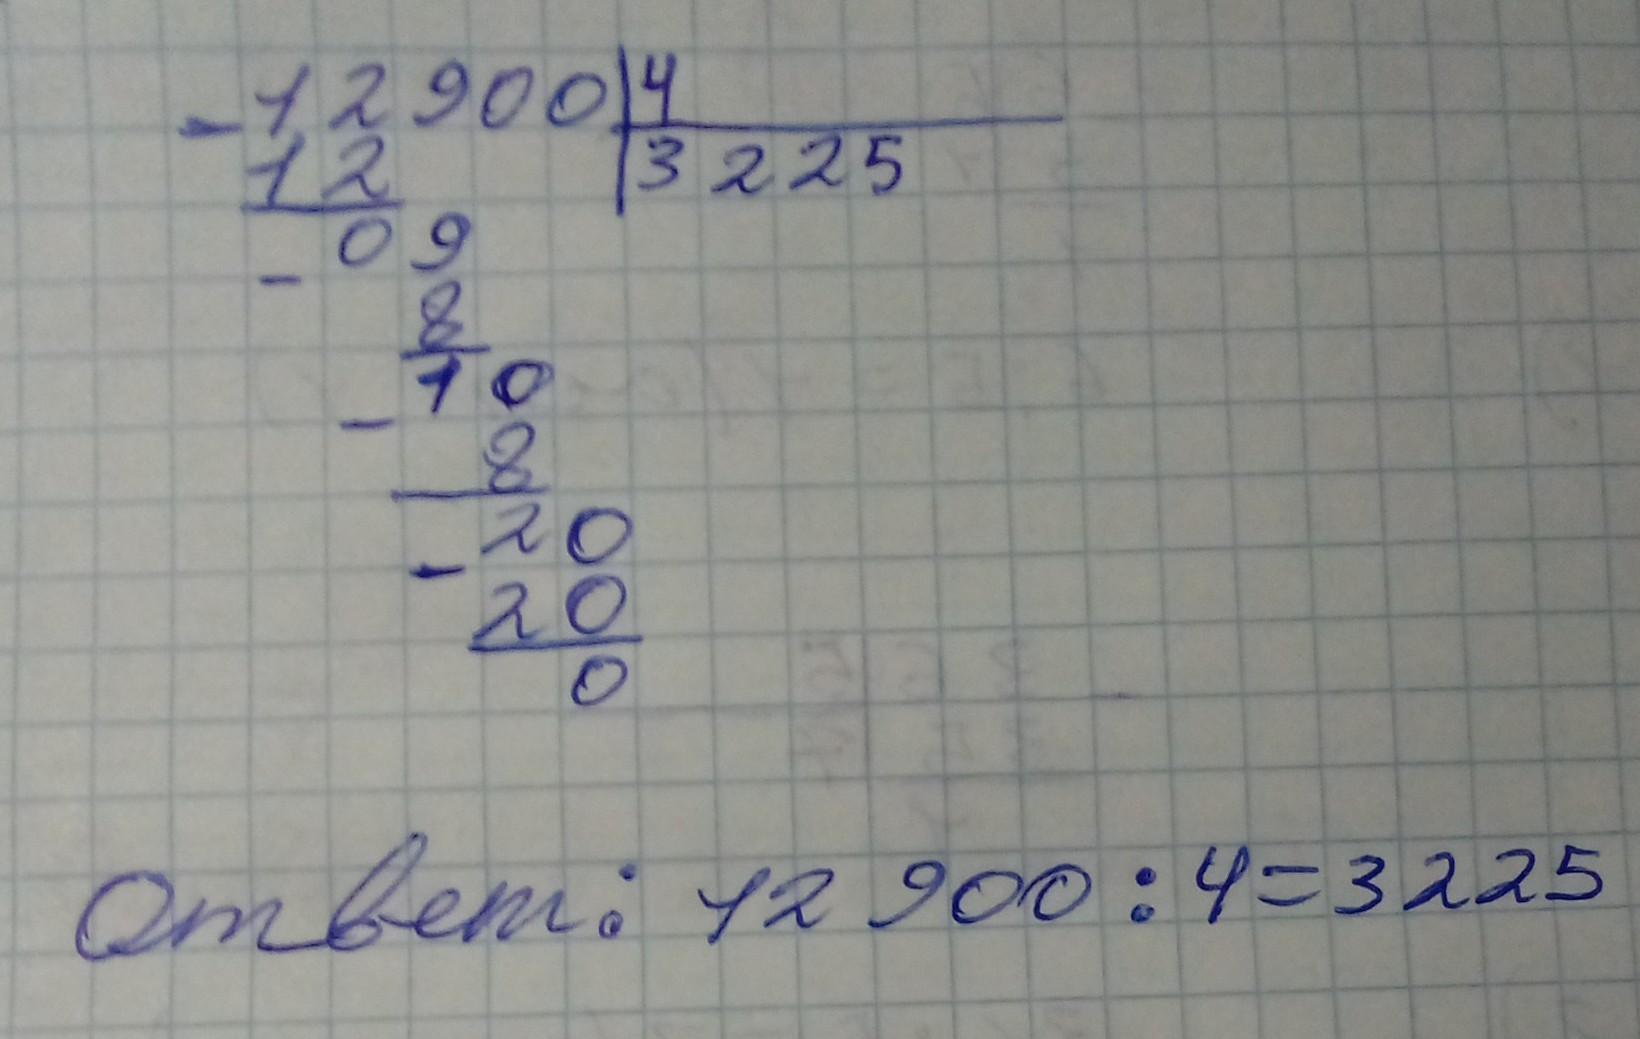 - 12900 | 4
12 | 3225
- 09
8
- 10
8
- 20
20
0
Ответ: 12 900 : 4 = 3225